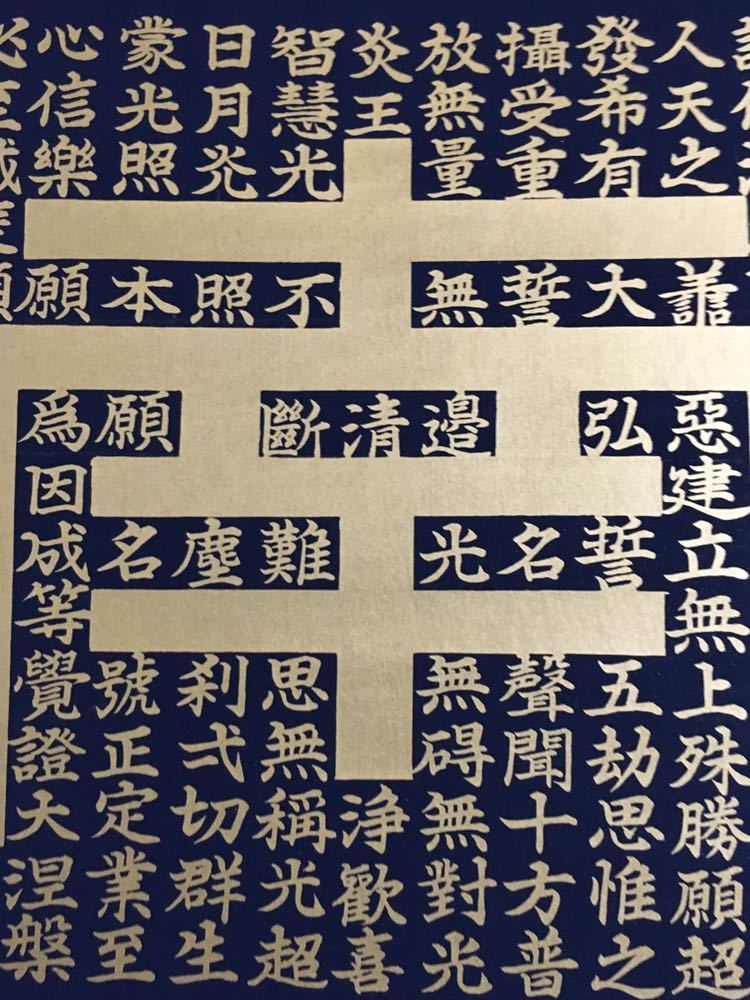 南
人天之善惡建立無上殊勝願超
發希有大弘誓五劫思惟之
攝受重誓名聲聞十方普
放無量無邊光無碍無對光
炎王清浄歡喜
智慧光不斷難思無稱光超
日月光照塵刹弌切群生
蒙光照本願名號正定業至
心信樂願爲因成等覺證大涅槃